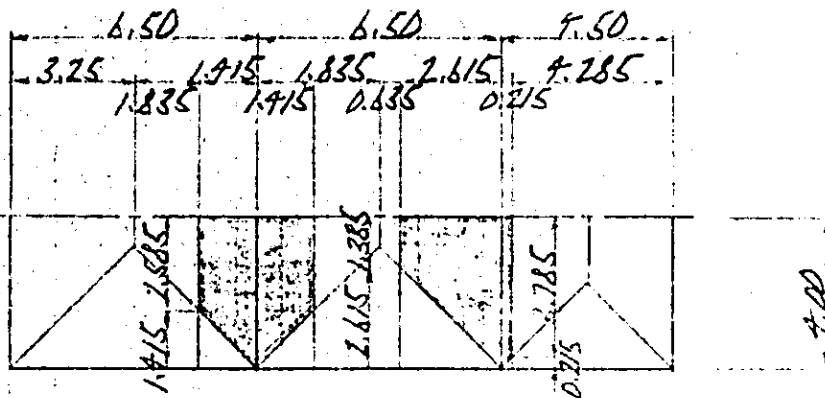 6.50 6.50 4.50
3.25 1.415 1.835 2.615 4.285
1.835 1.415 0.635 0.215
2.585 1.385 3.785
1.415 2.615 0.215
4.00